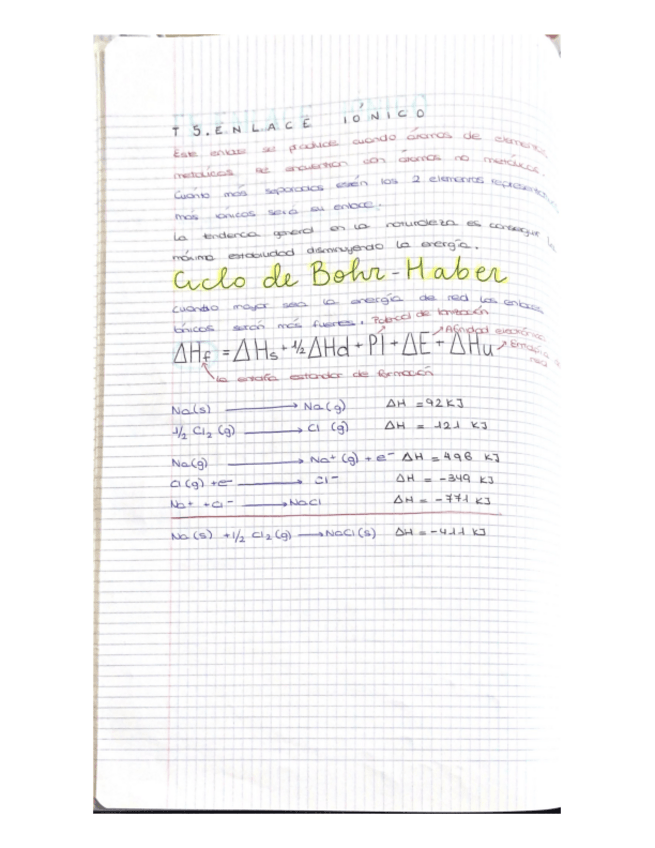 T 5. ENLACE IÓNICO
Este enlace se produce cuando átomos de elementos
metálicos se encuentran con átomos no metálicos.
Cuanto más separados estén los 2 elementos
más iónicos será su enlace.
La tendencia general en la naturaleza es conseguir la
máxima estabilidad disminuyendo la energía.
Ciclo de Bohr-Haber
cuando mayor sea la energía de red los enlaces
iónicos serán más fuertes. Potencial de Ionización
Afinidad electrónica
ΔHf = ΔHs + 1/2 ΔHd + PI + ΔE + ΔHu
estándar de formación
Na(s) → Na(g) ΔH = 92 KJ
1/2 Cl2 (g) → Cl (g) ΔH = 121 KJ
Na(g) → Na+ (g) + e- ΔH = 496 KJ
Cl(g) + e- → Cl- ΔH = -349 KJ
Na+ + Cl- → NaCl ΔH = -771 KJ
Na(s) + 1/2 Cl2(g) → NaCl(s) ΔH = -411 KJ